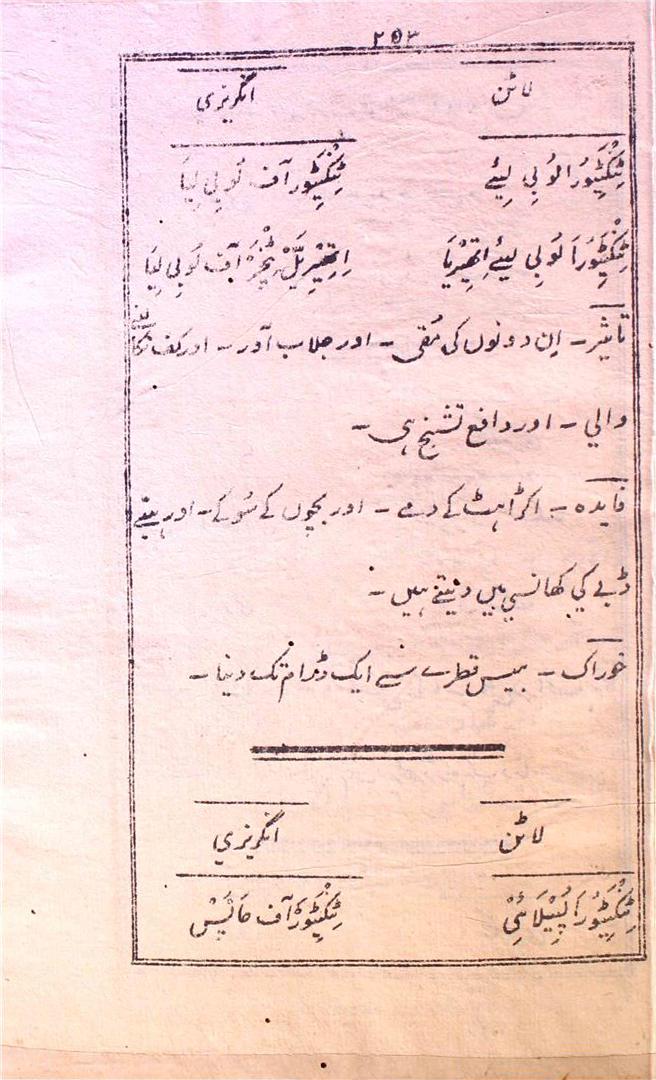 ۲۵۳
لاٹن انگریزی
ٹِنْکْچُورَا لوُبِی لِیئے ٹِنْکْچُورآف لُوبِی لِیَا
ٹِنْکْچُورَا لُوبِی لِیئے اِتھِیْرِیَا اِتھِیْرِیَلْ ٹِنْچَرْ آف لُوبِی لِیَا
تاثیر ۔ اِن دونوں کی مُقی ۔ اور جلاب آور ۔ اور کف نکالنے
والي ۔ اور دافع تشنج ہی ۔
فایدہ ۔ اکڑاہٹ کے دمے ۔ اور بچوں کے سُوکے ۔ اور
ڈبے کي کھانسي میں دیتے ہیں ۔
خوراک ۔ بیس قطرے سے ایک ڈرام تک دینا ۔
لاٹن انگریزي
ٹِنْکْچُورَا لُپِیْلَائِیْ ٹِنْکْچُورْآف هَاپْسْ